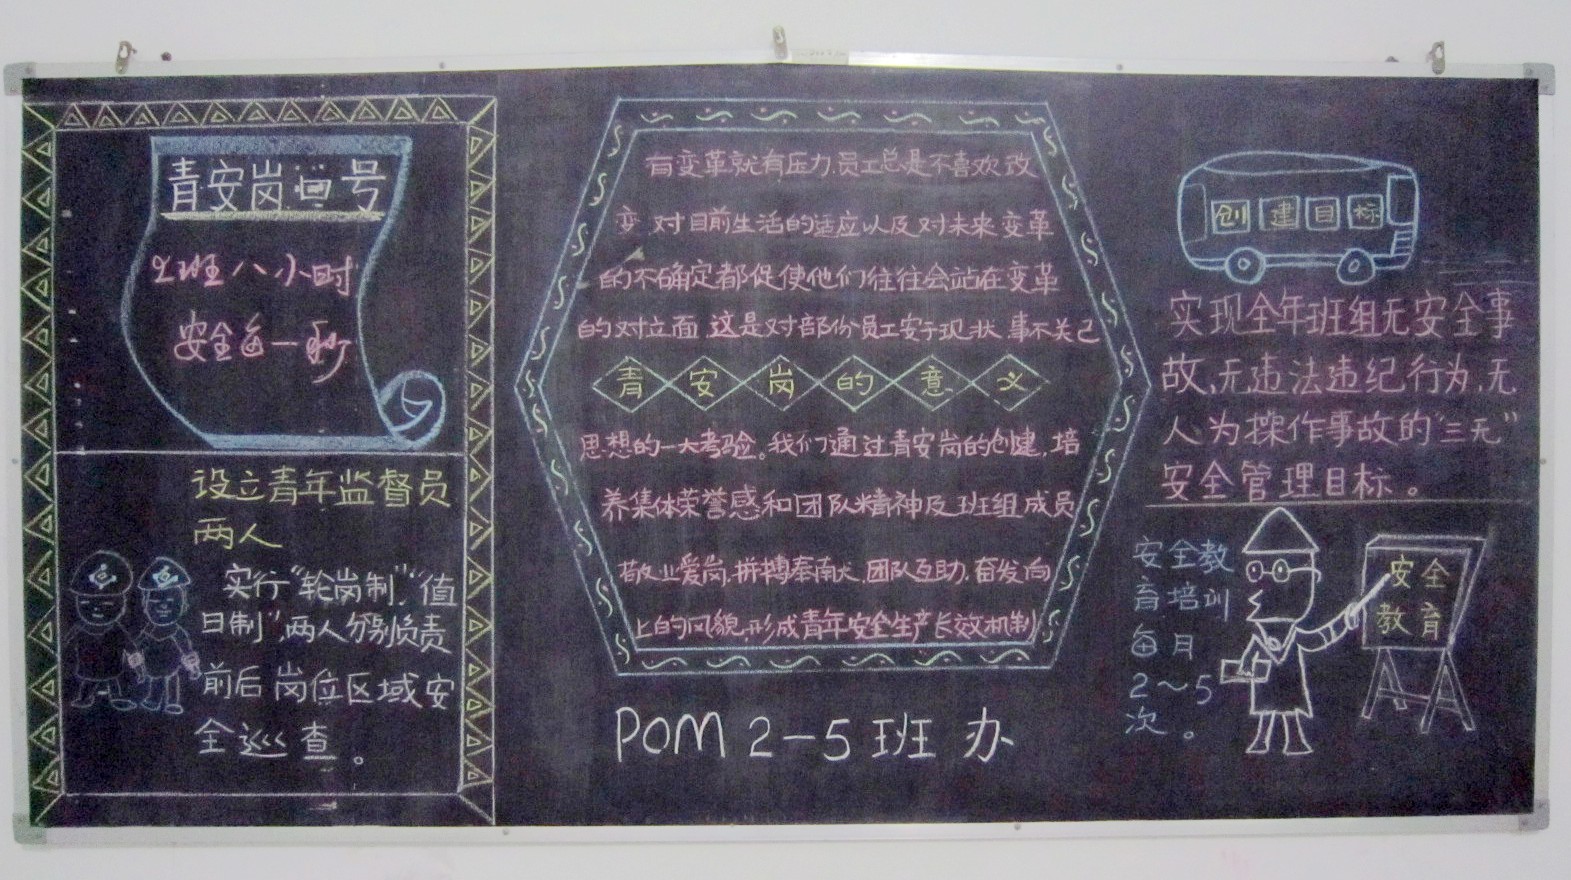 青安岗口号
上班八小时
安全每一秒
设立青年监督员
两人
实行"轮岗制","值
日制"两人分别负责
前后岗位区域安
全巡查。
有变革就有压力,员工总是不喜欢改
变 对目前生活的适应以及对未来变革
的不确定都促使他们往往会站在变革
的对立面,这是对部份员工安于现状 事不关己
青安岗的意义
思想的一大考验。我们通过青安岗的创建,培
养集体荣誉感和团队精神及班组成员
敬业爱岗,拼搏奉献,团队互助,奋发向
上的风貌,形成青年安全生产长效机制
POM 2-5班 办
创建目标
实现全年班组无安全事
故,无违法违纪行为,无
人为操作事故的"三无"
安全管理目标。
安全教
育培训
每月
2~5
次。
安全
教育